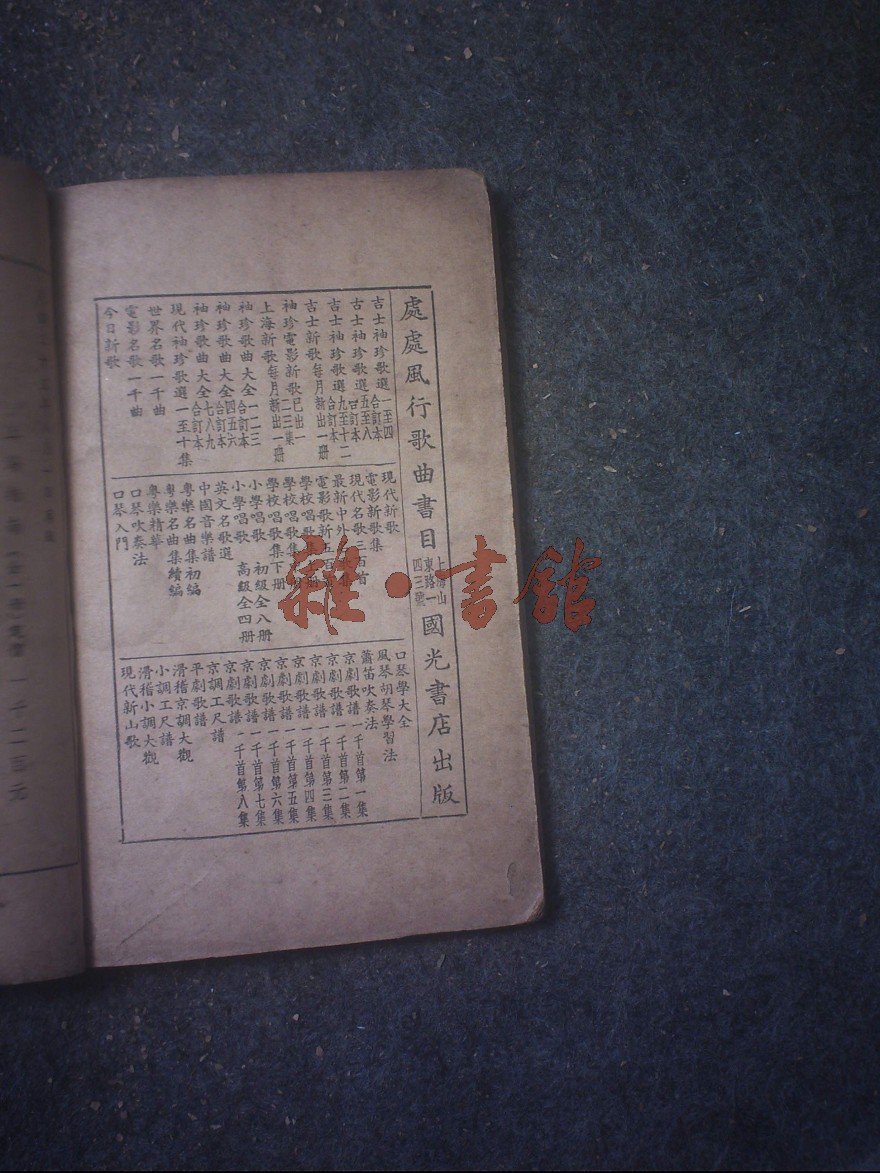 處處風行歌曲書目
上海山東路一四三號
國光書店出版
古士袖珍歌選 一至四 合訂本
古士袖珍歌選 五至八 合訂本
古士袖珍歌選 九至十二 合訂本
古士新歌每月新出一册
袖珍電影新歌 已出一二三集
上海新歌每月新出一册
袖珍歌曲大全 一二三 合訂本
袖珍歌曲大全 四五六 合訂本
袖珍歌曲大全 七八九 合訂本
現代袖珍歌選一至十集
世界名歌一千曲
電影名歌一千曲
今日新歌
現代新歌
電影新歌集
現代名歌三百首
最新中外
電影歌新五百
學校唱歌集 册
學校唱歌集 册
學校唱歌集下册
小學唱歌 初級全八册
小學唱歌 高級全四册
英文名歌選
中國音樂譜
粵樂名曲集初編
粵樂名曲集續編
粵樂精華
口琴吹奏法
口琴入門
口琴學大全
風琴胡琴學習法
蕭笛吹奏法
京劇歌譜一千首第一集
京劇歌譜一千首第二集
京劇歌譜一千首第三集
京劇歌譜一千首第四集
京劇歌譜一千首第五集
京劇歌譜一千首第六集
京劇歌譜一千首第七集
京劇歌譜一千首第八集
京調工尺譜
平劇歌譜
滑稽京調大觀
小調工尺譜
滑稽小調大觀
現代新山歌
一千二百元
雜·書館